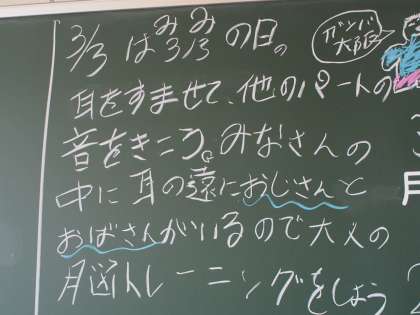 みみ
3/3 は 3/3 の日。
ガンバ
大阪
耳をすませて、他のパートの
音をきこう。みなさんの
中に耳の遠いおじさんと
おばさんがいるので大人の
脳トレーニングをしよう
月